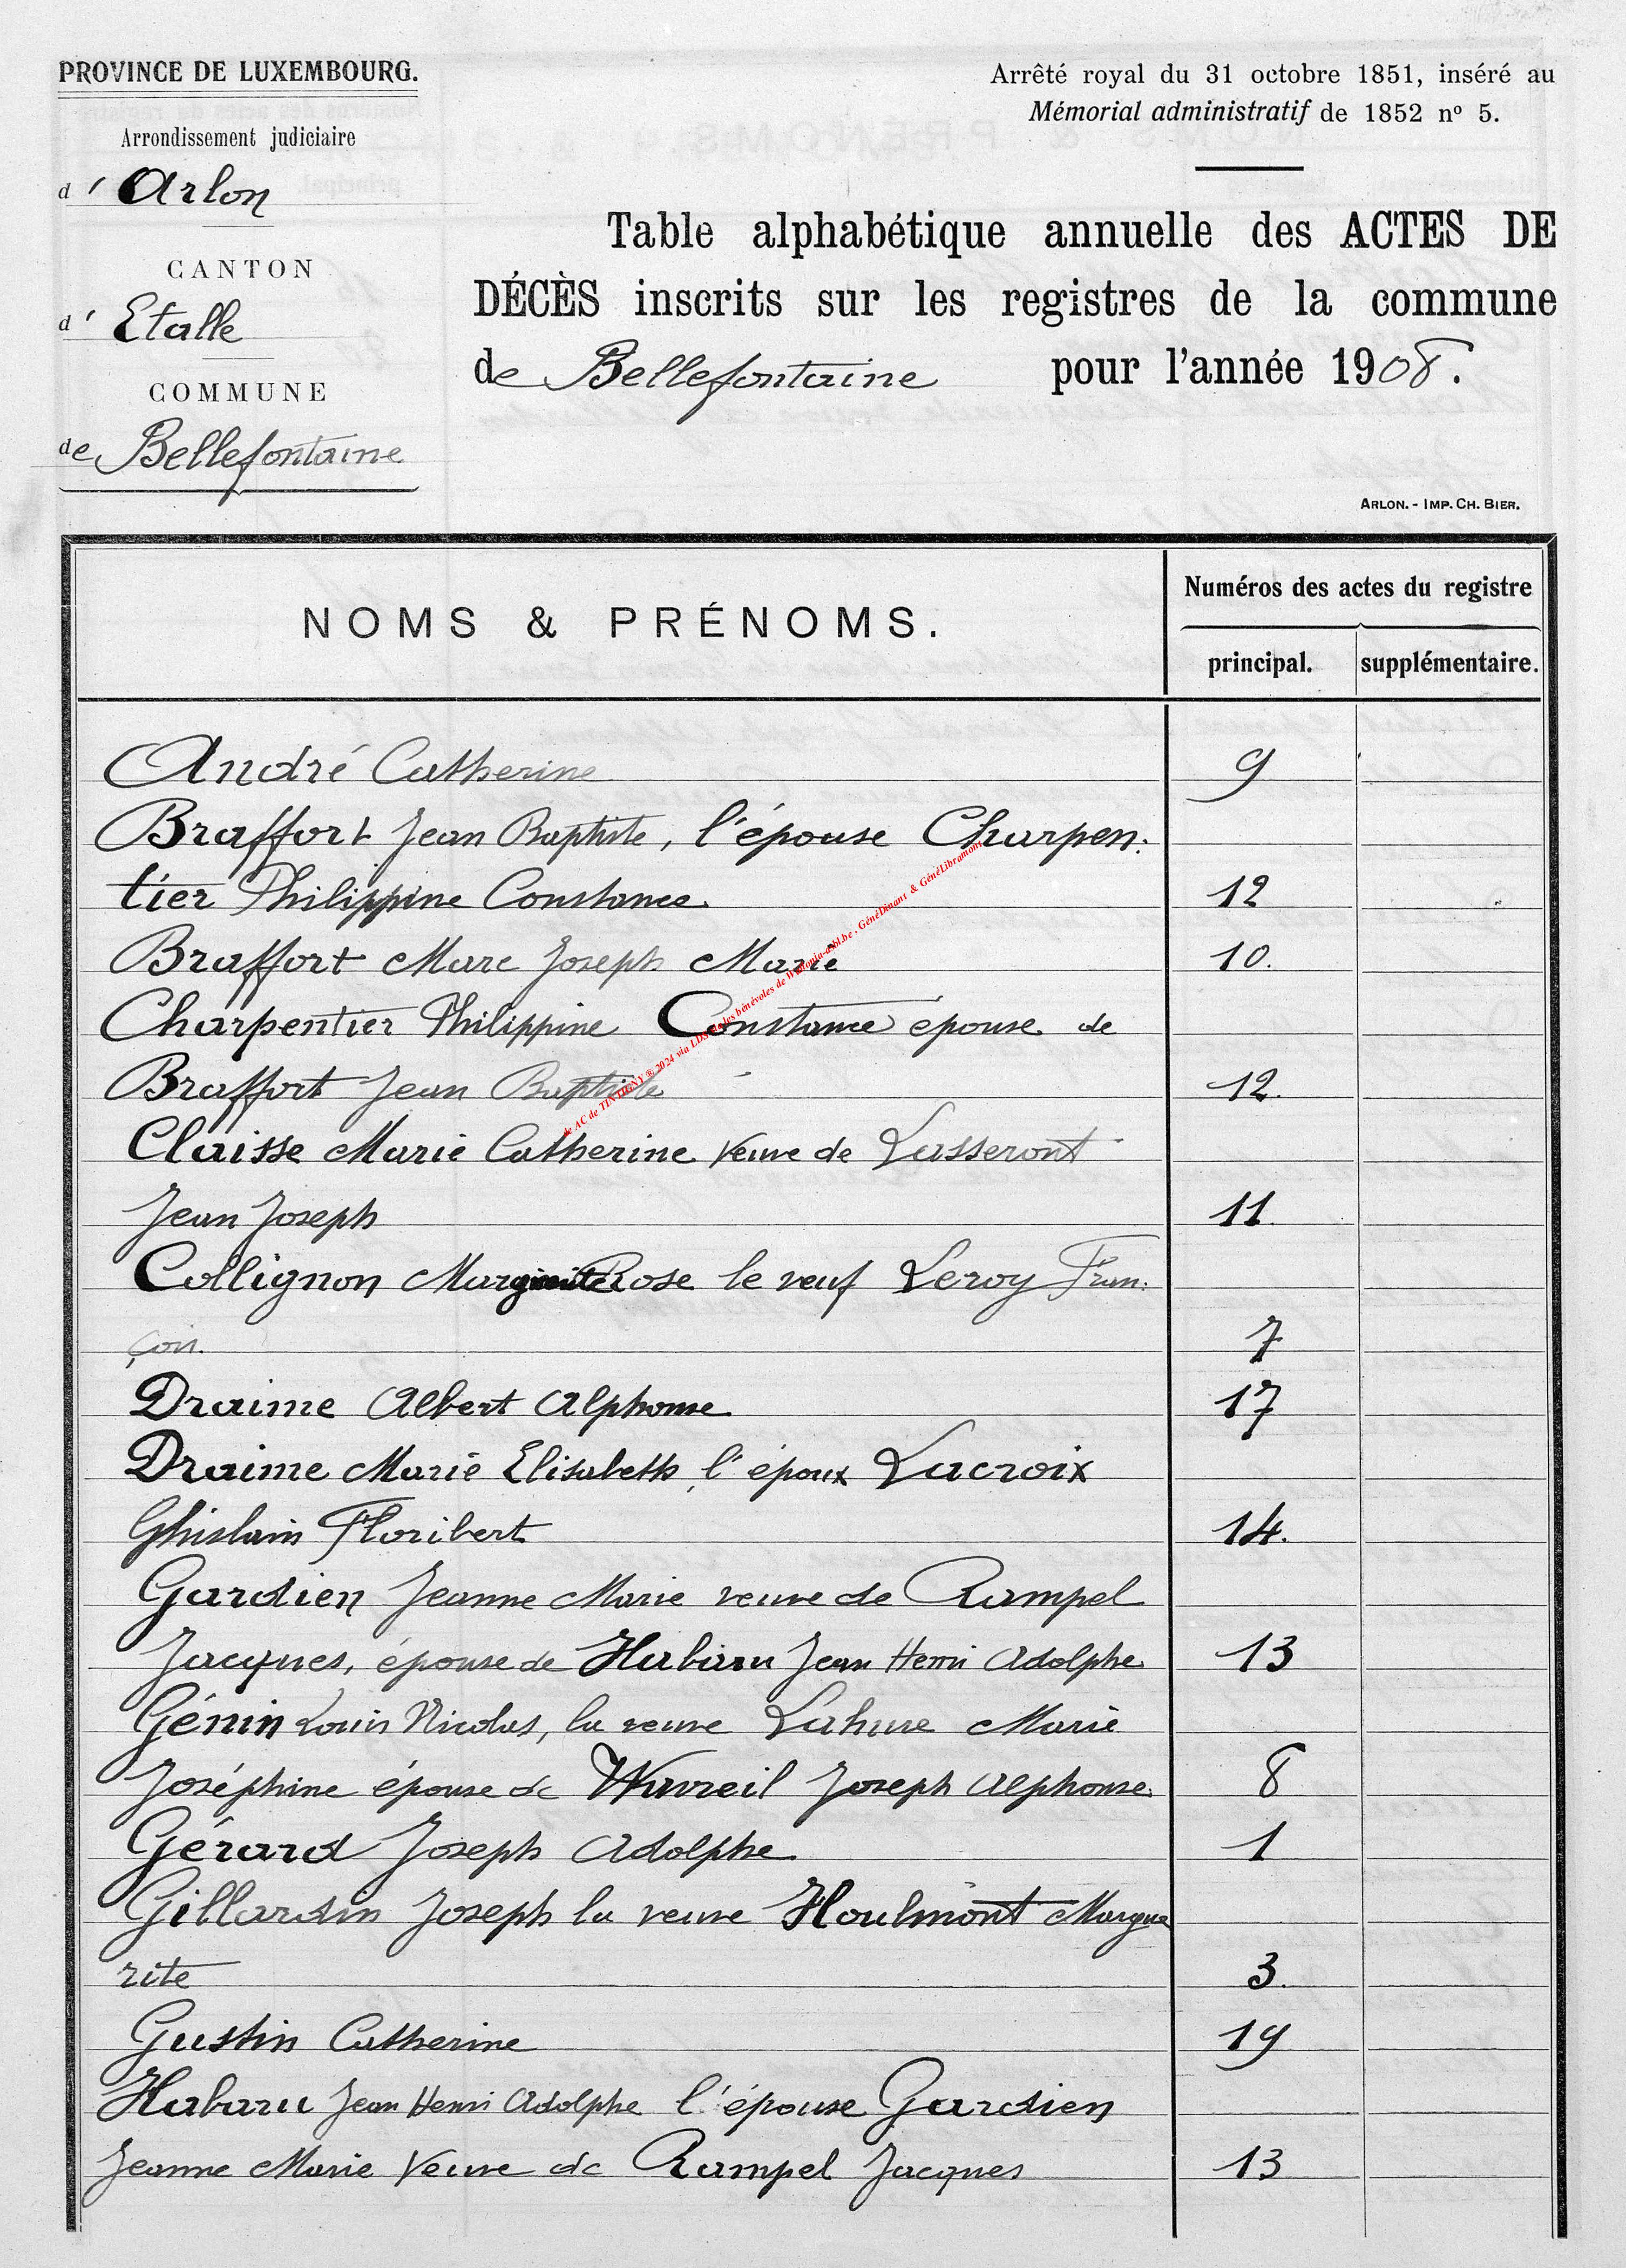 PROVINCE DE LUXEMBOURG.
Arrondissement judiciaire
d' Arlon
CANTON
d' Etalle
COMMUNE
de Bellefontaine
Arrêté royal du 31 octobre 1851, inséré au
Mémorial administratif de 1852 nº 5.
Table alphabétique annuelle des ACTES DE
DÉCÈS inscrits sur les registres de la commune
de Bellefontaine pour l'année 1908.
ARLON. - IMP. CH. BIER.
NOMS & PRÉNOMS.
Numéros des actes du registre
principal. supplémentaire.
André Catherine 9
Braffort Jean Baptiste, l'épouse Charpen:
tier Philippine Constance. 12
Braffort Marc Joseph Marie 10.
Charpentier Philippine Constance épouse de
Braffort Jean Baptiste 12.
Claisse Marie Catherine veuve de Lasseront
Jean Joseph 11.
Collignon Rose le veuf Leroy Fran:
çois. 7
Draime Albert Alphonse 17
Draime Marie Elisabeth, l'époux Lacroix
Ghislain Floribert 14.
Gardien Jeanne Marie veuve de Rampel
Jacques, épouse de Habaru Jean Henri Adolphe 13
Génin Louis Nicolas, la veuve Lahure Marie
Joséphine épouse de Wavreil Joseph Alphonse. 8
Gérard Joseph Adolphe 1
Gillardin Joseph la veuve Houlmont Margue
rite 3.
Gustin Catherine 19
Habaru Jean Henri Adolphe l'épouse Gardien
Jeanne Marie veuve de Rampel Jacques 13
de AC de TINTIGNY ® 2024 via LDS et les bénévoles de Wallonia-asbl.be, GénéDinant & GénéLibramont